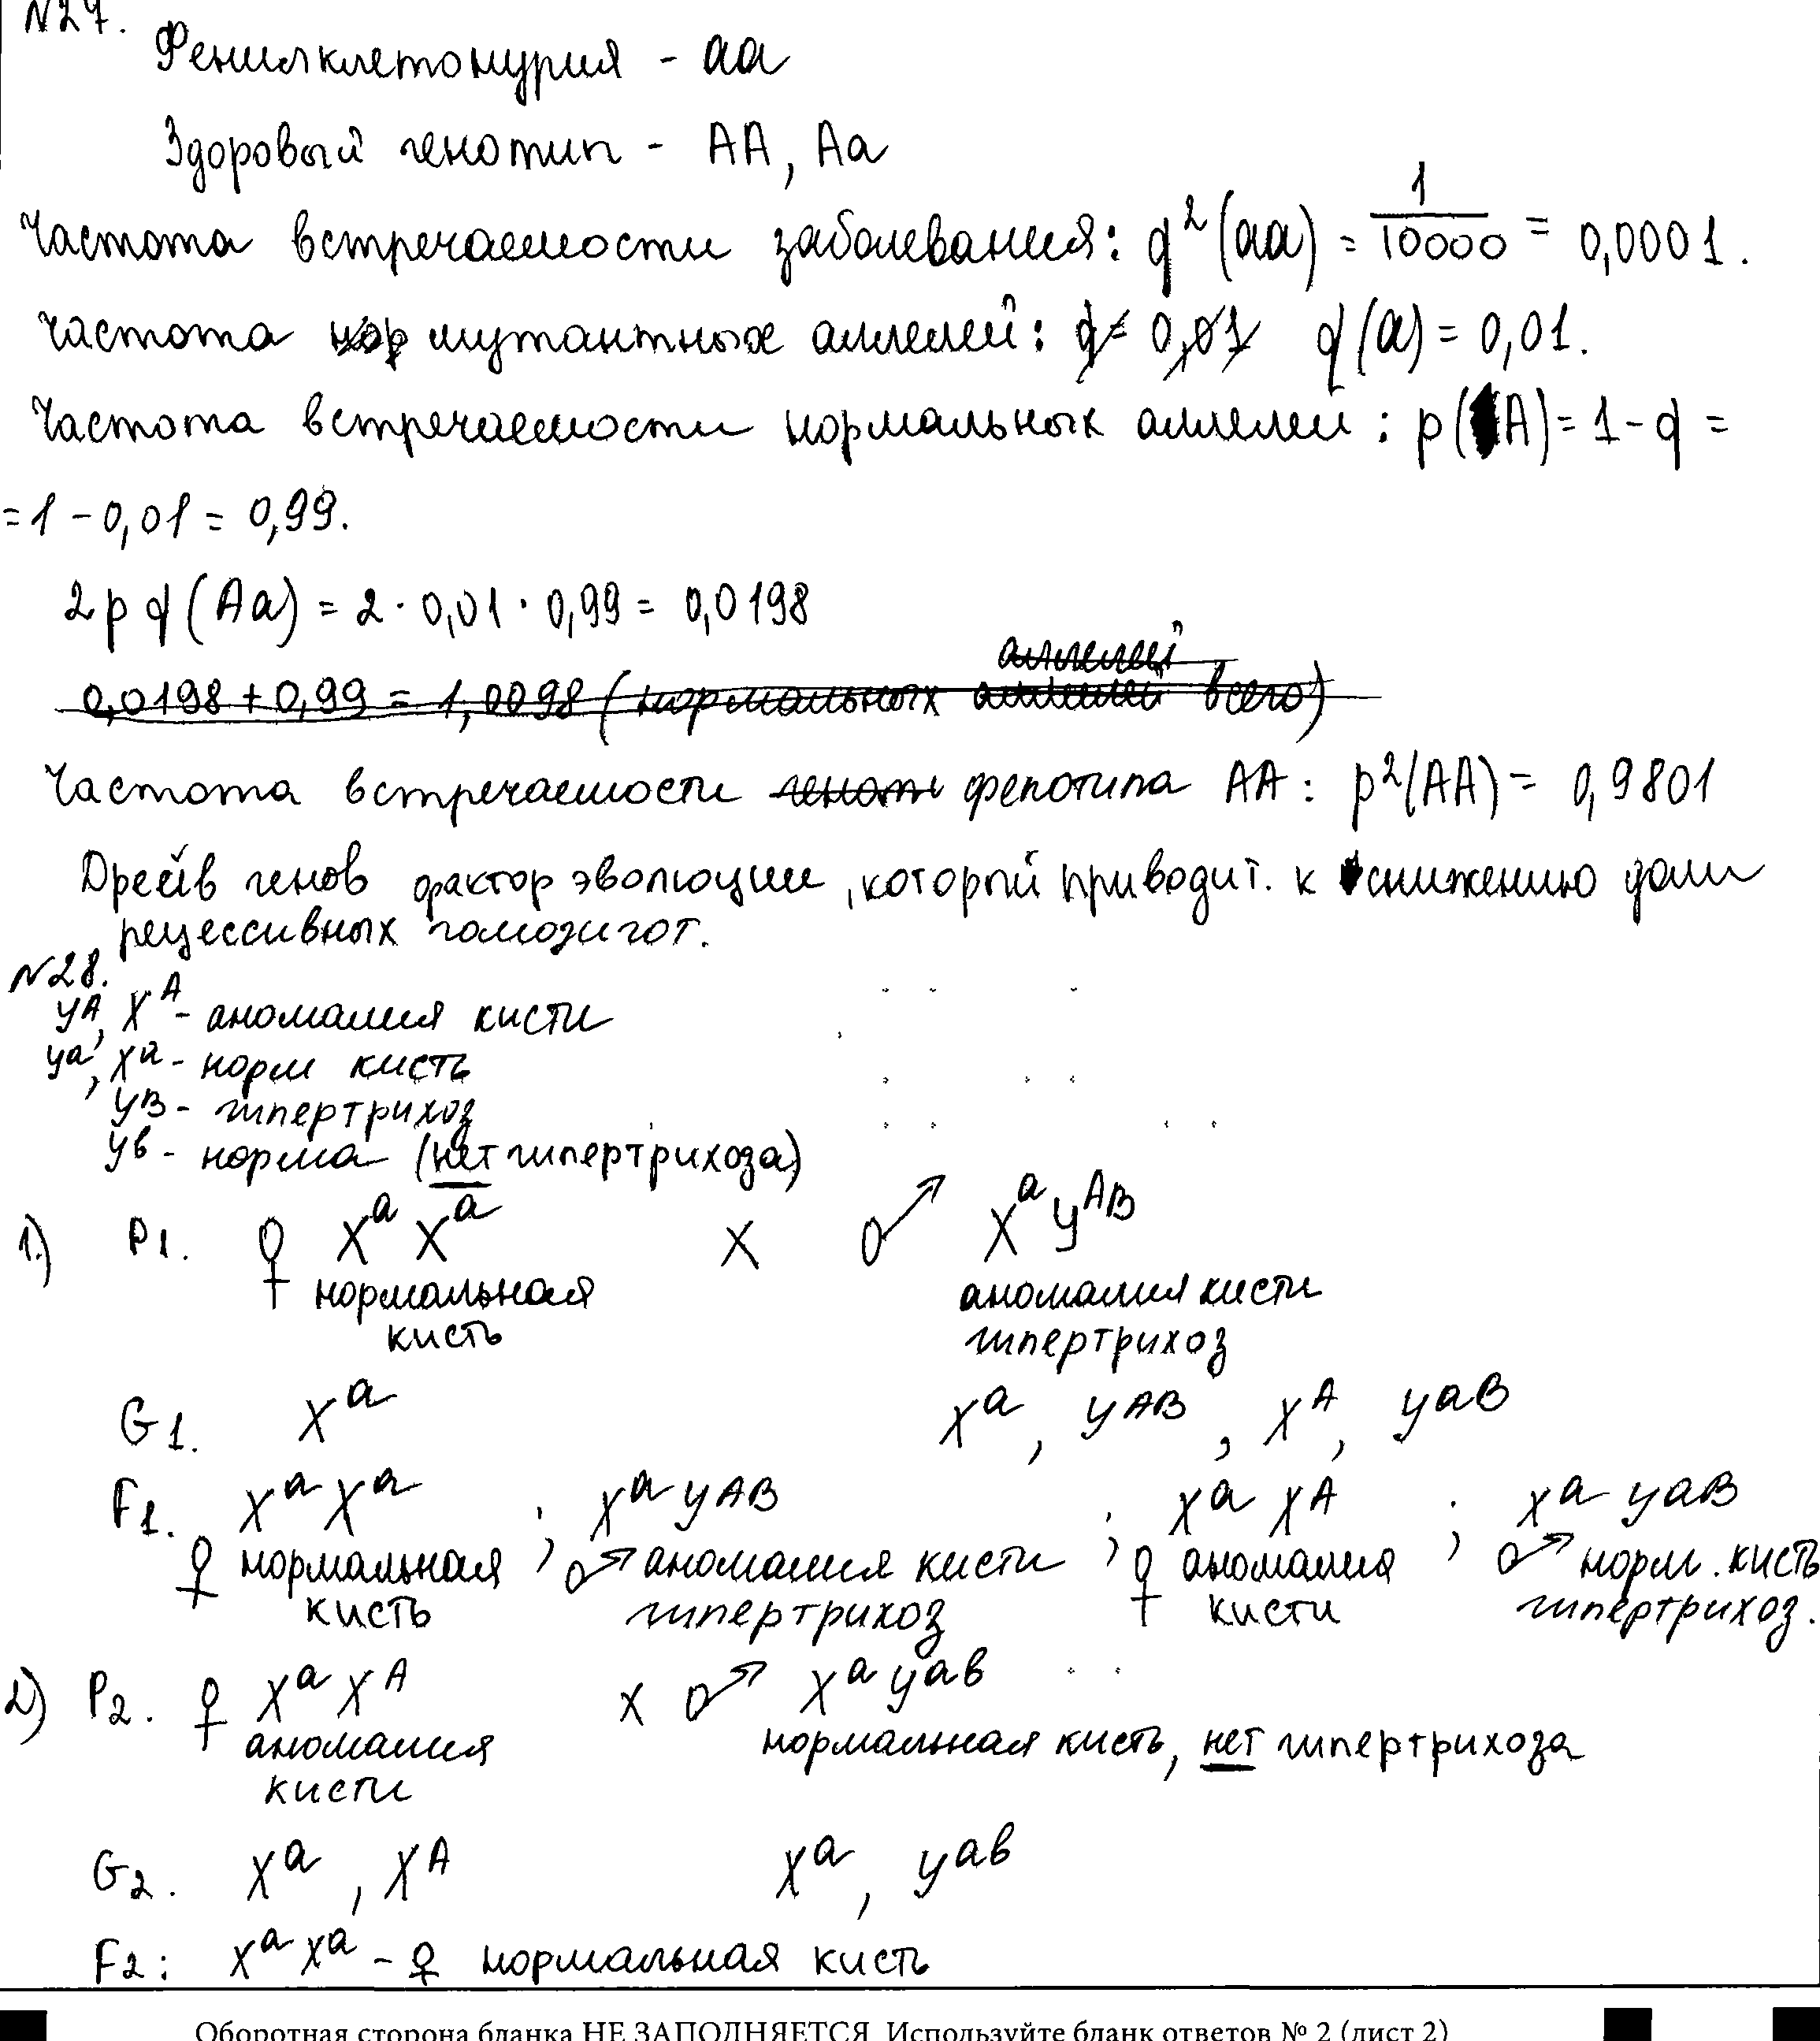 №27.
Фенилклетонурия - аа
Здоровый генотип - АА, Аа
Частота встречаемости заболевания: q²(аа) = 1/10000 = 0,0001.
Частота мутантных аллелей: q= 0,01 q(а) = 0,01.
Частота встречаемости нормальных аллелеи: p(А) = 1 - q =
= 1 - 0,01 = 0,99.
2pq(Аа) = 2 · 0,01 · 0,99 = 0,0198
аллелей
0,0198 + 0,99 = 1,0098 (нормальных аллелей всего)
Частота встречаемости генот фенотипа АА: p²(АА) = 0,9801
Дрейв генов фактор эволюции, который приводит. к снижению доли
рецессивных гомозигот.
№28.
yᴬ, Xᴬ - аномалия кисти
yᵃ, Xᵃ - норм кисть
yᴮ - гипертрихоз
yᵇ - норма (нет гипертрихоза)
1) P1. ♀ XᵃXᵃ X ♂ XᵃYᴬᴮ
нормальная кисть аномалия кисти гипертрихоз
G1. Xᵃ Xᵃ, yᴬᴮ, Xᴬ, yᵃᴮ
F1. XᵃXᵃ ; Xᵃyᴬᴮ ; XᵃXᴬ ; Xᵃyᵃᴮ
♀ нормальная кисть ; ♂ аномалия кисти гипертрихоз ; ♀ аномалия кисти ; ♂ норм. кисть гипертрихоз.
2) P2. ♀ XᵃXᴬ X ♂ Xᵃyᵃᵇ
аномалия кисти нормальная кисть, нет гипертрихоза
G2. Xᵃ, Xᴬ Xᵃ, yᵃᵇ
F2: XᵃXᵃ - ♀ нормальная кисть
Оборотная сторона бланка НЕ ЗАПОЛНЯЕТСЯ. Используйте бланк ответов № 2 (лист 2)